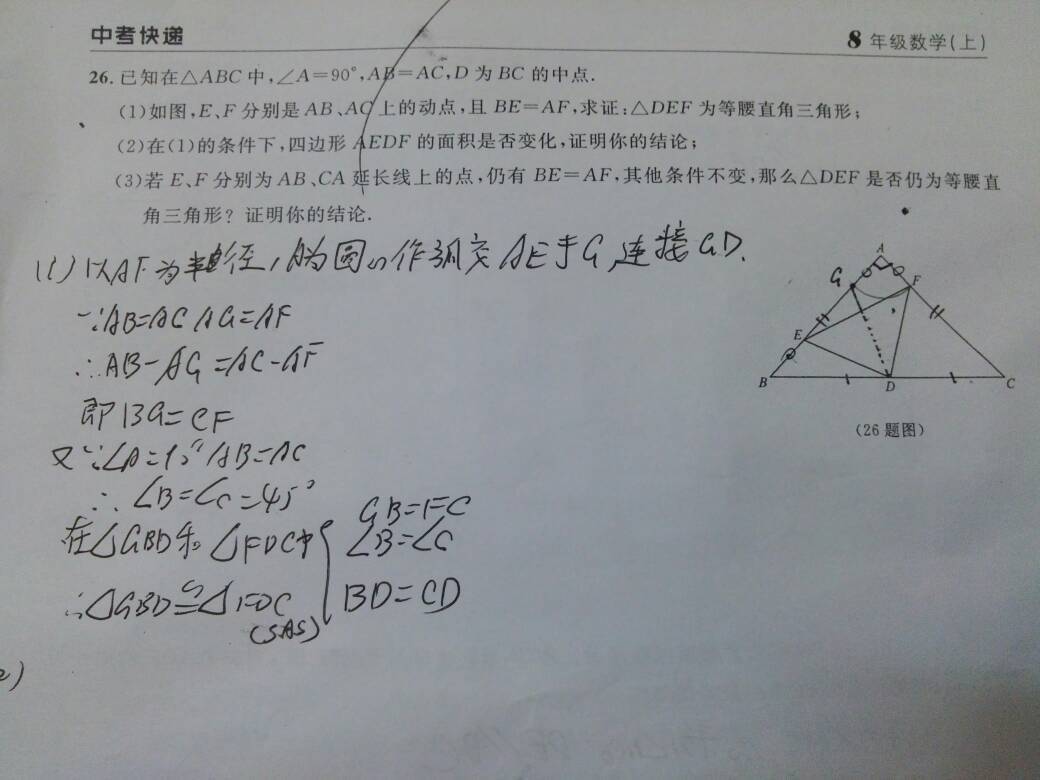 中考快递
8 年级数学(上)
26. 已知在△ABC 中,∠A=90°,AB=AC,D 为 BC 的中点.
(1)如图,E、F 分别是 AB、AC 上的动点,且 BE=AF,求证:△DEF 为等腰直角三角形;
(2)在(1)的条件下,四边形 AEDF 的面积是否变化,证明你的结论;
(3)若 E、F 分别为 AB、CA 延长线上的点,仍有 BE=AF,其他条件不变,那么△DEF 是否仍为等腰直
角三角形? 证明你的结论.
(1) 以AF为半径,A为圆心作弧交AE于G,连接GD.
∵AB=AC AG=AF
∴AB-AG=AC-AF
即BG=CF
又∵∠A=90° AB=AC
∴∠B=∠C=45°
在△GBD和△FDC中
GB=FC
∠B=∠C
BD=CD
∴△GBD≌△FDC
(SAS)
2)
A
G
F
E
B
D
C
(26 题图)